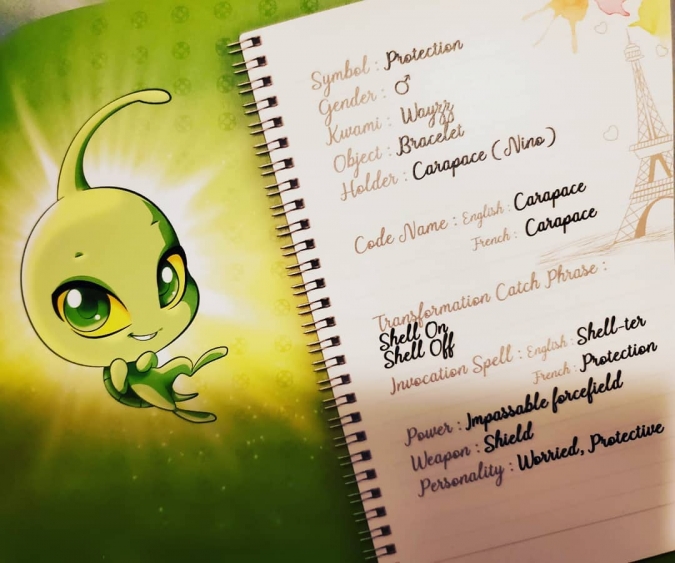 Symbol : Protection
Gender : ♂
Kwami : Wayzz
Object : Bracelet
Holder : Carapace (Nino)
Code Name : English : Carapace
French : Carapace
Transformation Catch Phrase :
Shell On
Shell Off
Invocation Spell : English : Shell-ter
French : Protection
Power : Impassable forcefield
Weapon : Shield
Personality : Worried, Protective